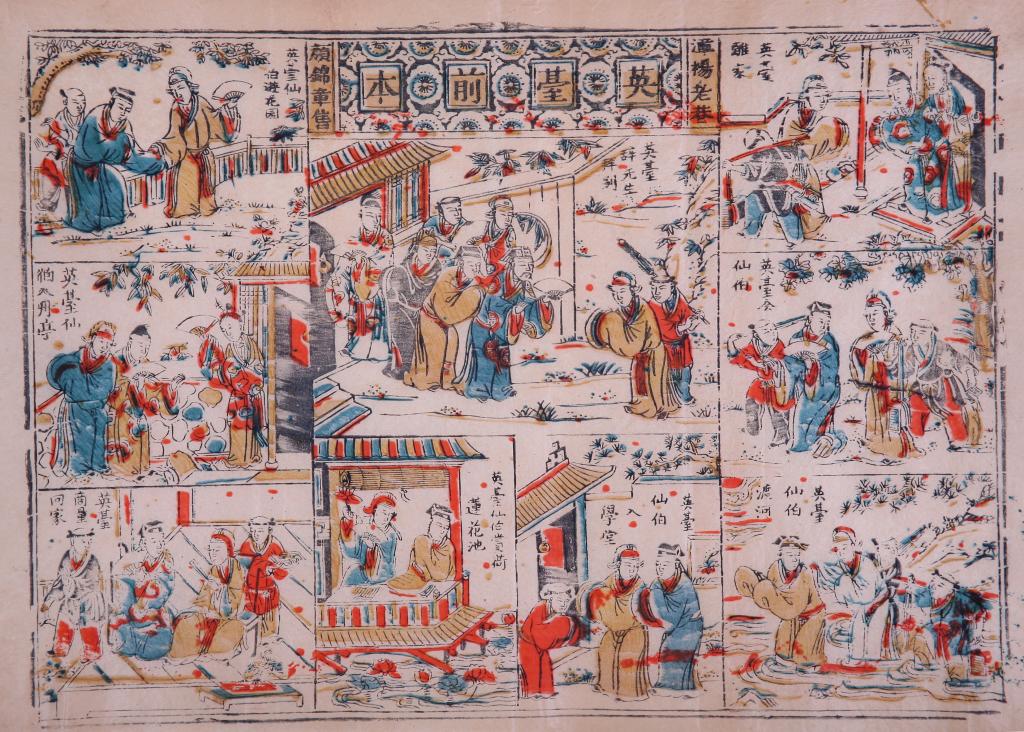 英臺前本
漳楊老巷
顏錦章售
英臺
離家
英臺
拜別
英臺仙
伯遊花园
英臺会
仙伯
英基仙
英臺
仙伯
渡河
英臺
仙伯
入
學堂
英臺仙伯賞荷
蓮花池
英基
商量
回家